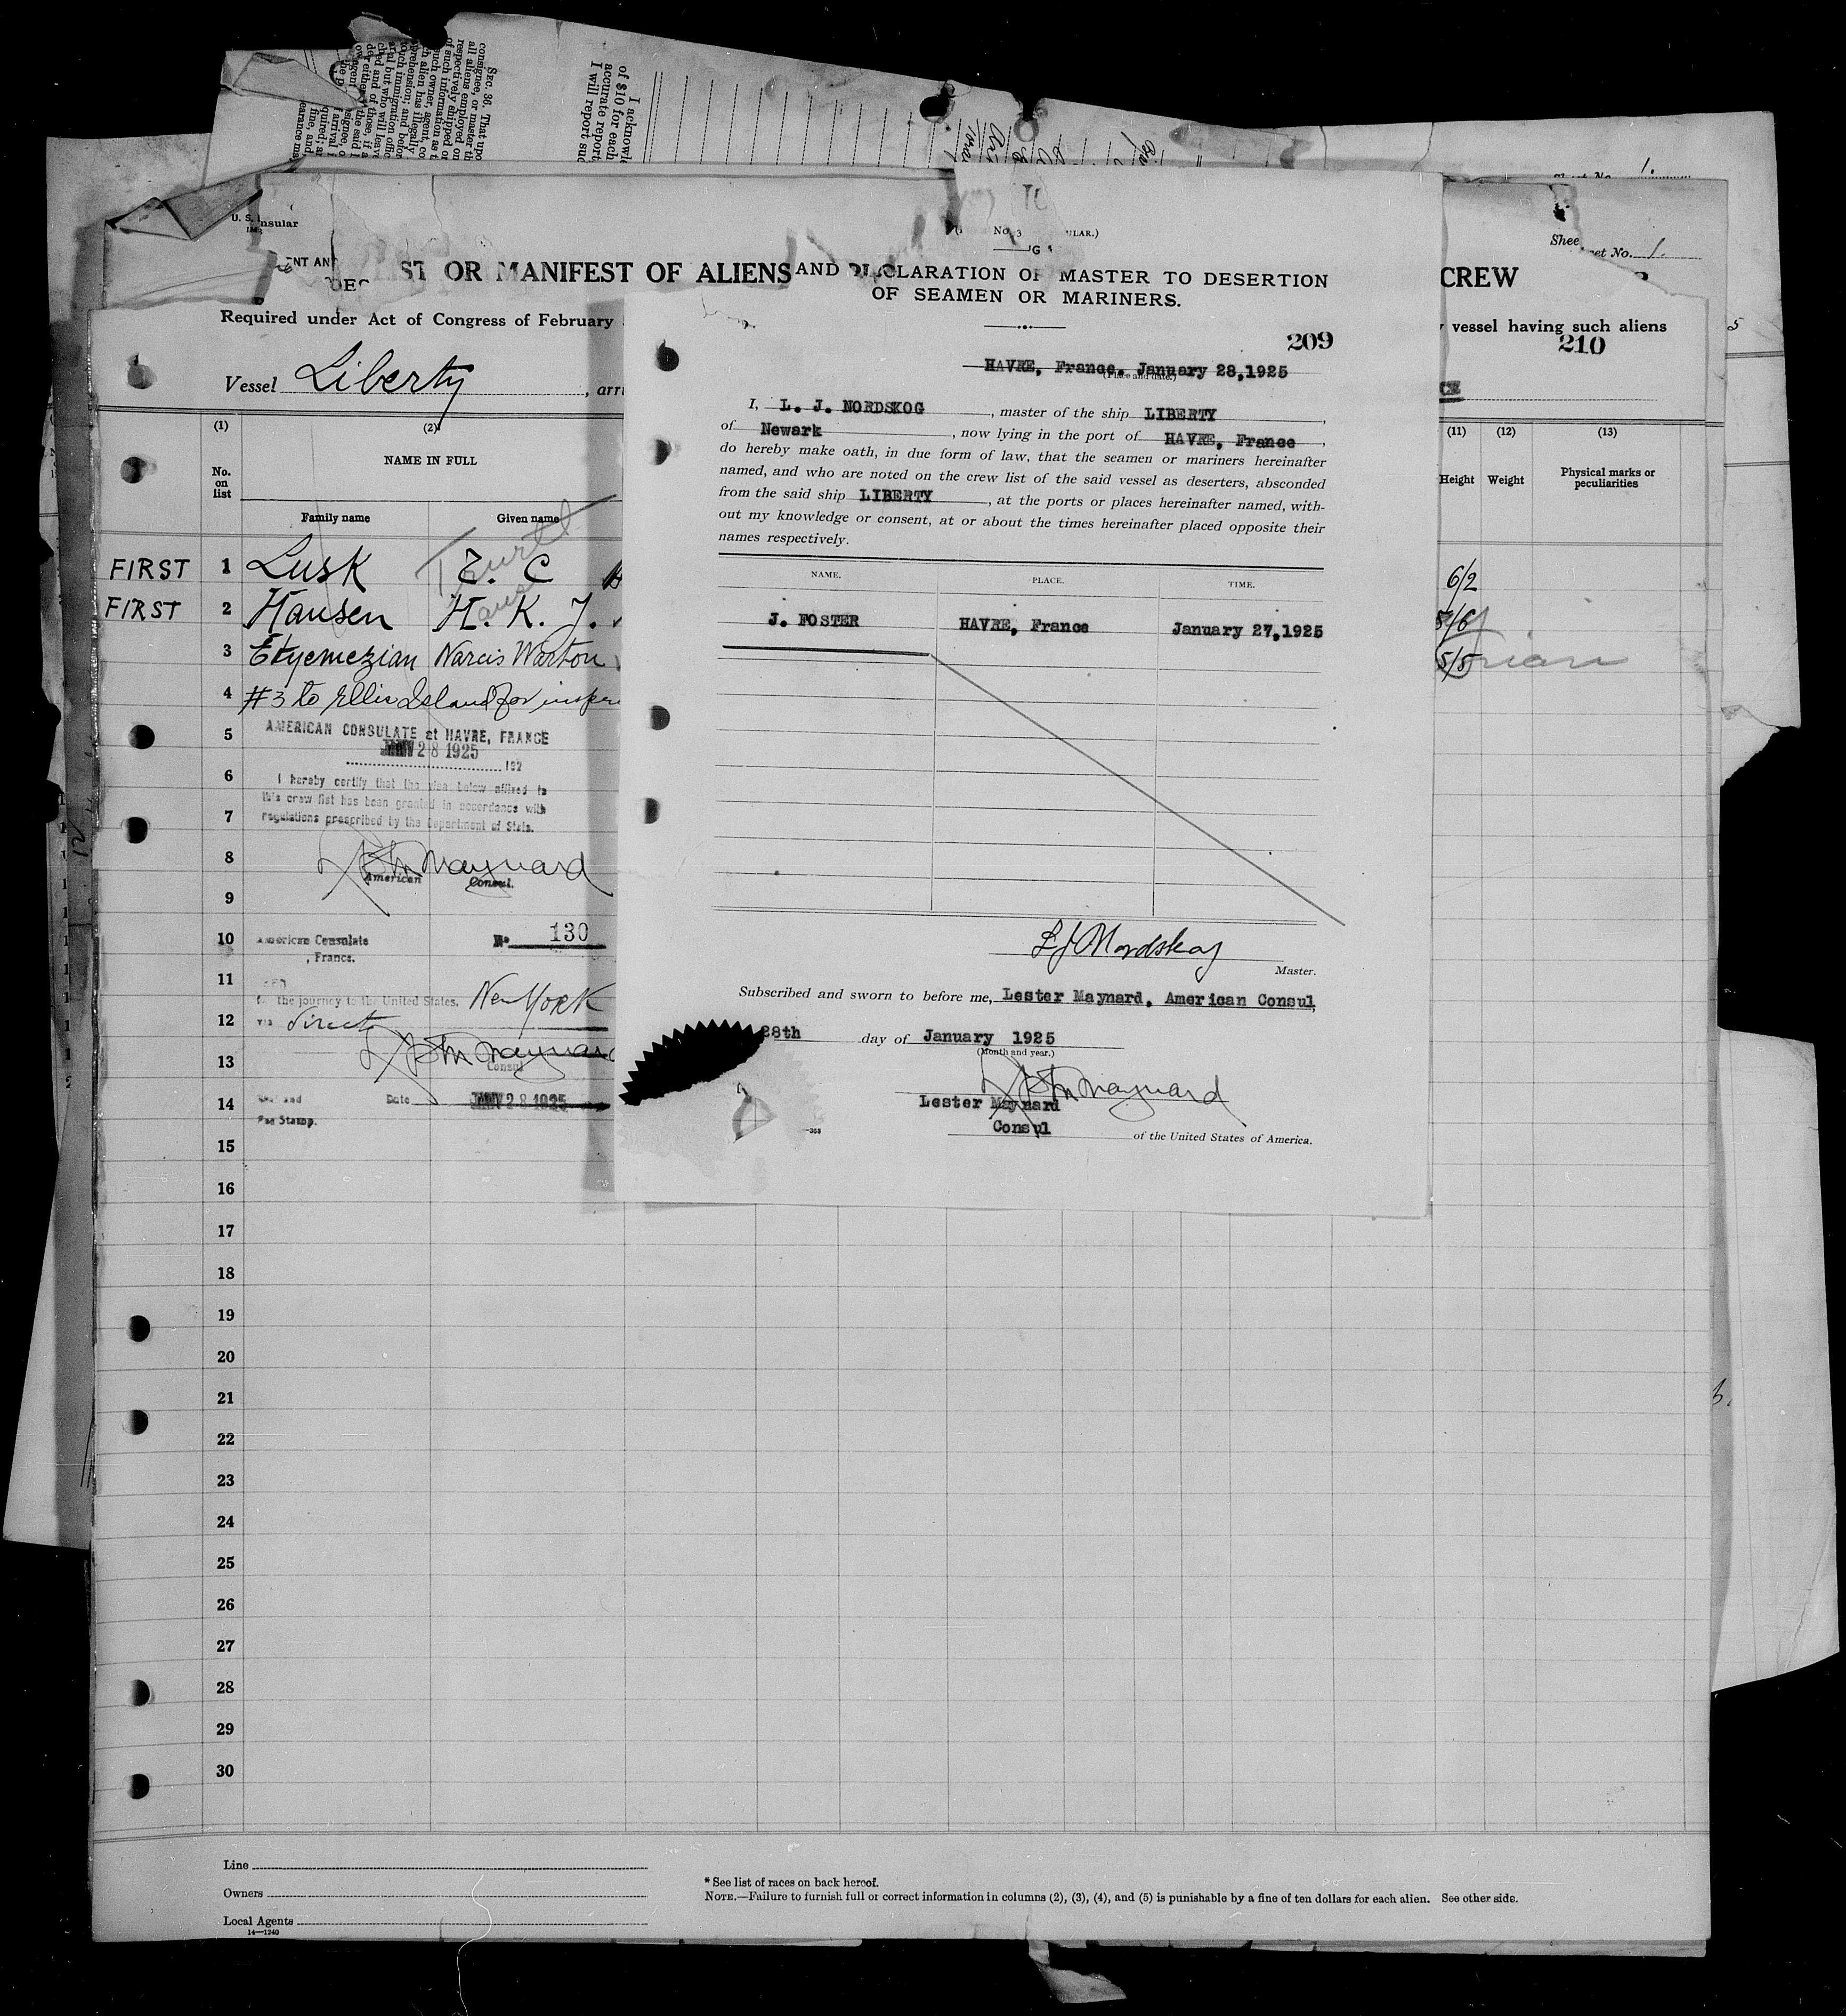 SEC. 36. That upo
consignee, or master
all aliens employed on
respectively shipped o
of such information as
I acknowl
of $10 for each
accurate report
I will report suc
Sheet No. 1.
U. S.
nsular
ENT AN
ST OR MANIFEST OF ALIENS
Required under Act of Congress of February
Vessel Liberty, arri
(1)
(2)
No. on list
NAME IN FULL
Family name
Given name
FIRST 1 Lusk E. C
FIRST 2 Hansen H. K. J.
3 Ekyemezian Narcis Warton
4 #3 to Ellis Island for inspec
5
AMERICAN CONSULATE at HAVRE, FRANCE
JANV 28 1925
192
6
I hereby certify that the visa below affixed to
this crew list has been granted in accordance with
7
regulations prescribed by the Department of State.
8
Lester Maynard
American Consul.
9
10
American Consulate No 130
, France.
11
for the journey to the United States. New York
12
via direct
Lester Maynard
13
Consul
14
Date JANV 28 1925
Fee Stamp.
15
16
17
18
19
20
21
22
23
24
25
26
27
28
29
30
Line
Owners
Local Agents
14—1240
* See list of races on back hereof.
NOTE.—Failure to furnish full or correct information in columns (2), (3), (4), and (5) is punishable by a fine of ten dollars for each alien. See other side.
No. 3
ULAR.)
AND DECLARATION OF MASTER TO DESERTION
OF SEAMEN OR MARINERS.
209
HAVRE, France, January 28,1925
(Place and date.)
I, L. J. NORDSKOG, master of the ship LIBERTY,
of Newark, now lying in the port of HAVRE, France,
do hereby make oath, in due form of law, that the seamen or mariners hereinafter
named, and who are noted on the crew list of the said vessel as deserters, absconded
from the said ship LIBERTY, at the ports or places hereinafter named, with-
out my knowledge or consent, at or about the times hereinafter placed opposite their
names respectively.
NAME. PLACE. TIME.
J. FOSTER HAVRE, France January 27,1925
L J Nordskog
Master.
Subscribed and sworn to before me, Lester Maynard, American Consul,
28th day of January 1925
(Month and year.)
Lester Maynard
Lester Maynard
Consul
of the United States of America.
—368
Shee
eet No. 1.
CREW
vessel having such aliens
210
CE
(11) (12) (13)
Height Weight Physical marks or peculiarities
6/2
5/6
5/5